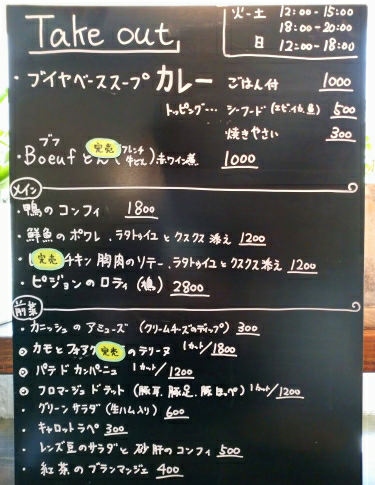 Take out
火-土 12:00-15:00
18:00-20:00
日 12:00-18:00
・ブイヤベーススープカレー ごはん付 1000
トッピング… シーフード(エビ,イカ,魚) 500
焼きやさい 300
ブフ
・Boeufどん(完売 フレンチ牛どん)赤ワイン煮 1000
メイン
・鴨のコンフィ 1800
・鮮魚のポワレ、ラタトゥイユとクスクス添え 1200
・完売 チキン胸肉のソテー、ラタトゥイユとクスクス添え 1200
・ピジョンのロティ(鳩) 2800
前菜
・カニッシュのアミューズ (クリームチーズのディップ) 300
・カモとフォアグ 完売 のテリーヌ 1カット/1800
・パテドカンパーニュ 1カット/1200
・フロマージュドテット (豚耳、豚足、豚ほっぺ) 1カット/1200
・グリーンサラダ(生ハム入り) 600
・キャロットラペ 300
・レンズ豆のサラダと砂肝のコンフィ 500
・紅茶のブランマンジェ 400